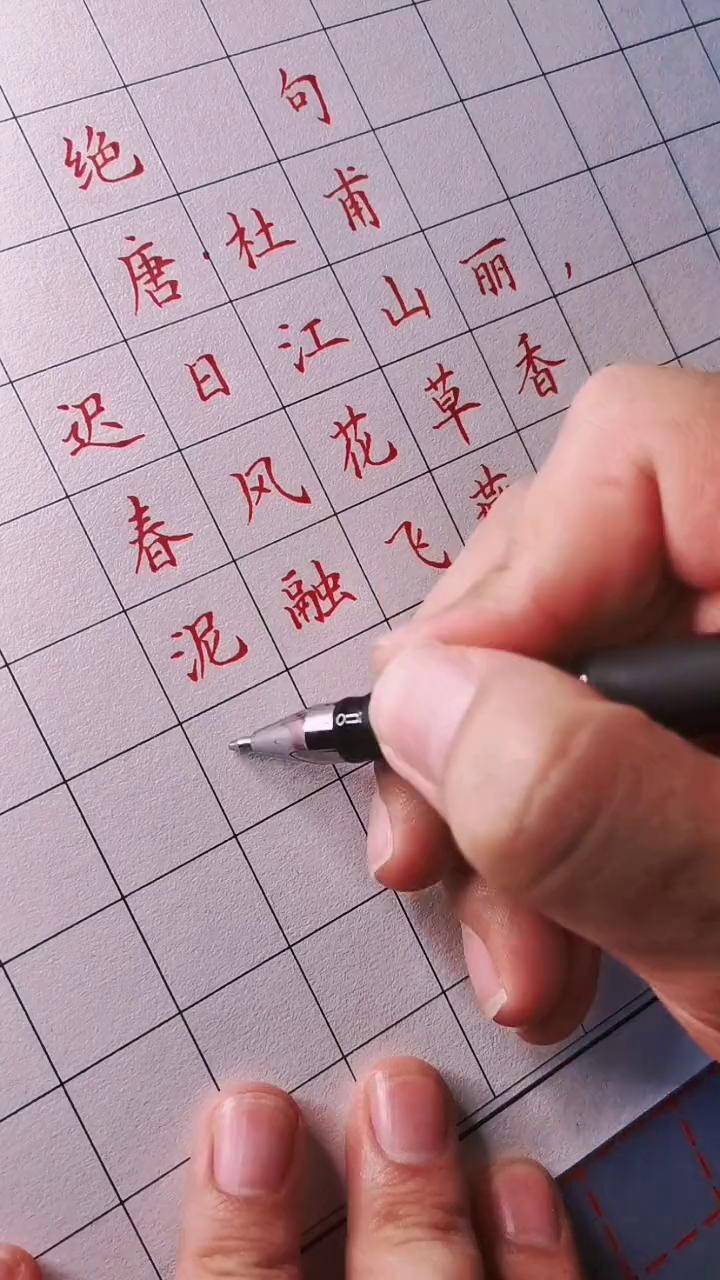 绝句
唐·杜甫
迟日江山丽，
春风花草香
泥融飞燕